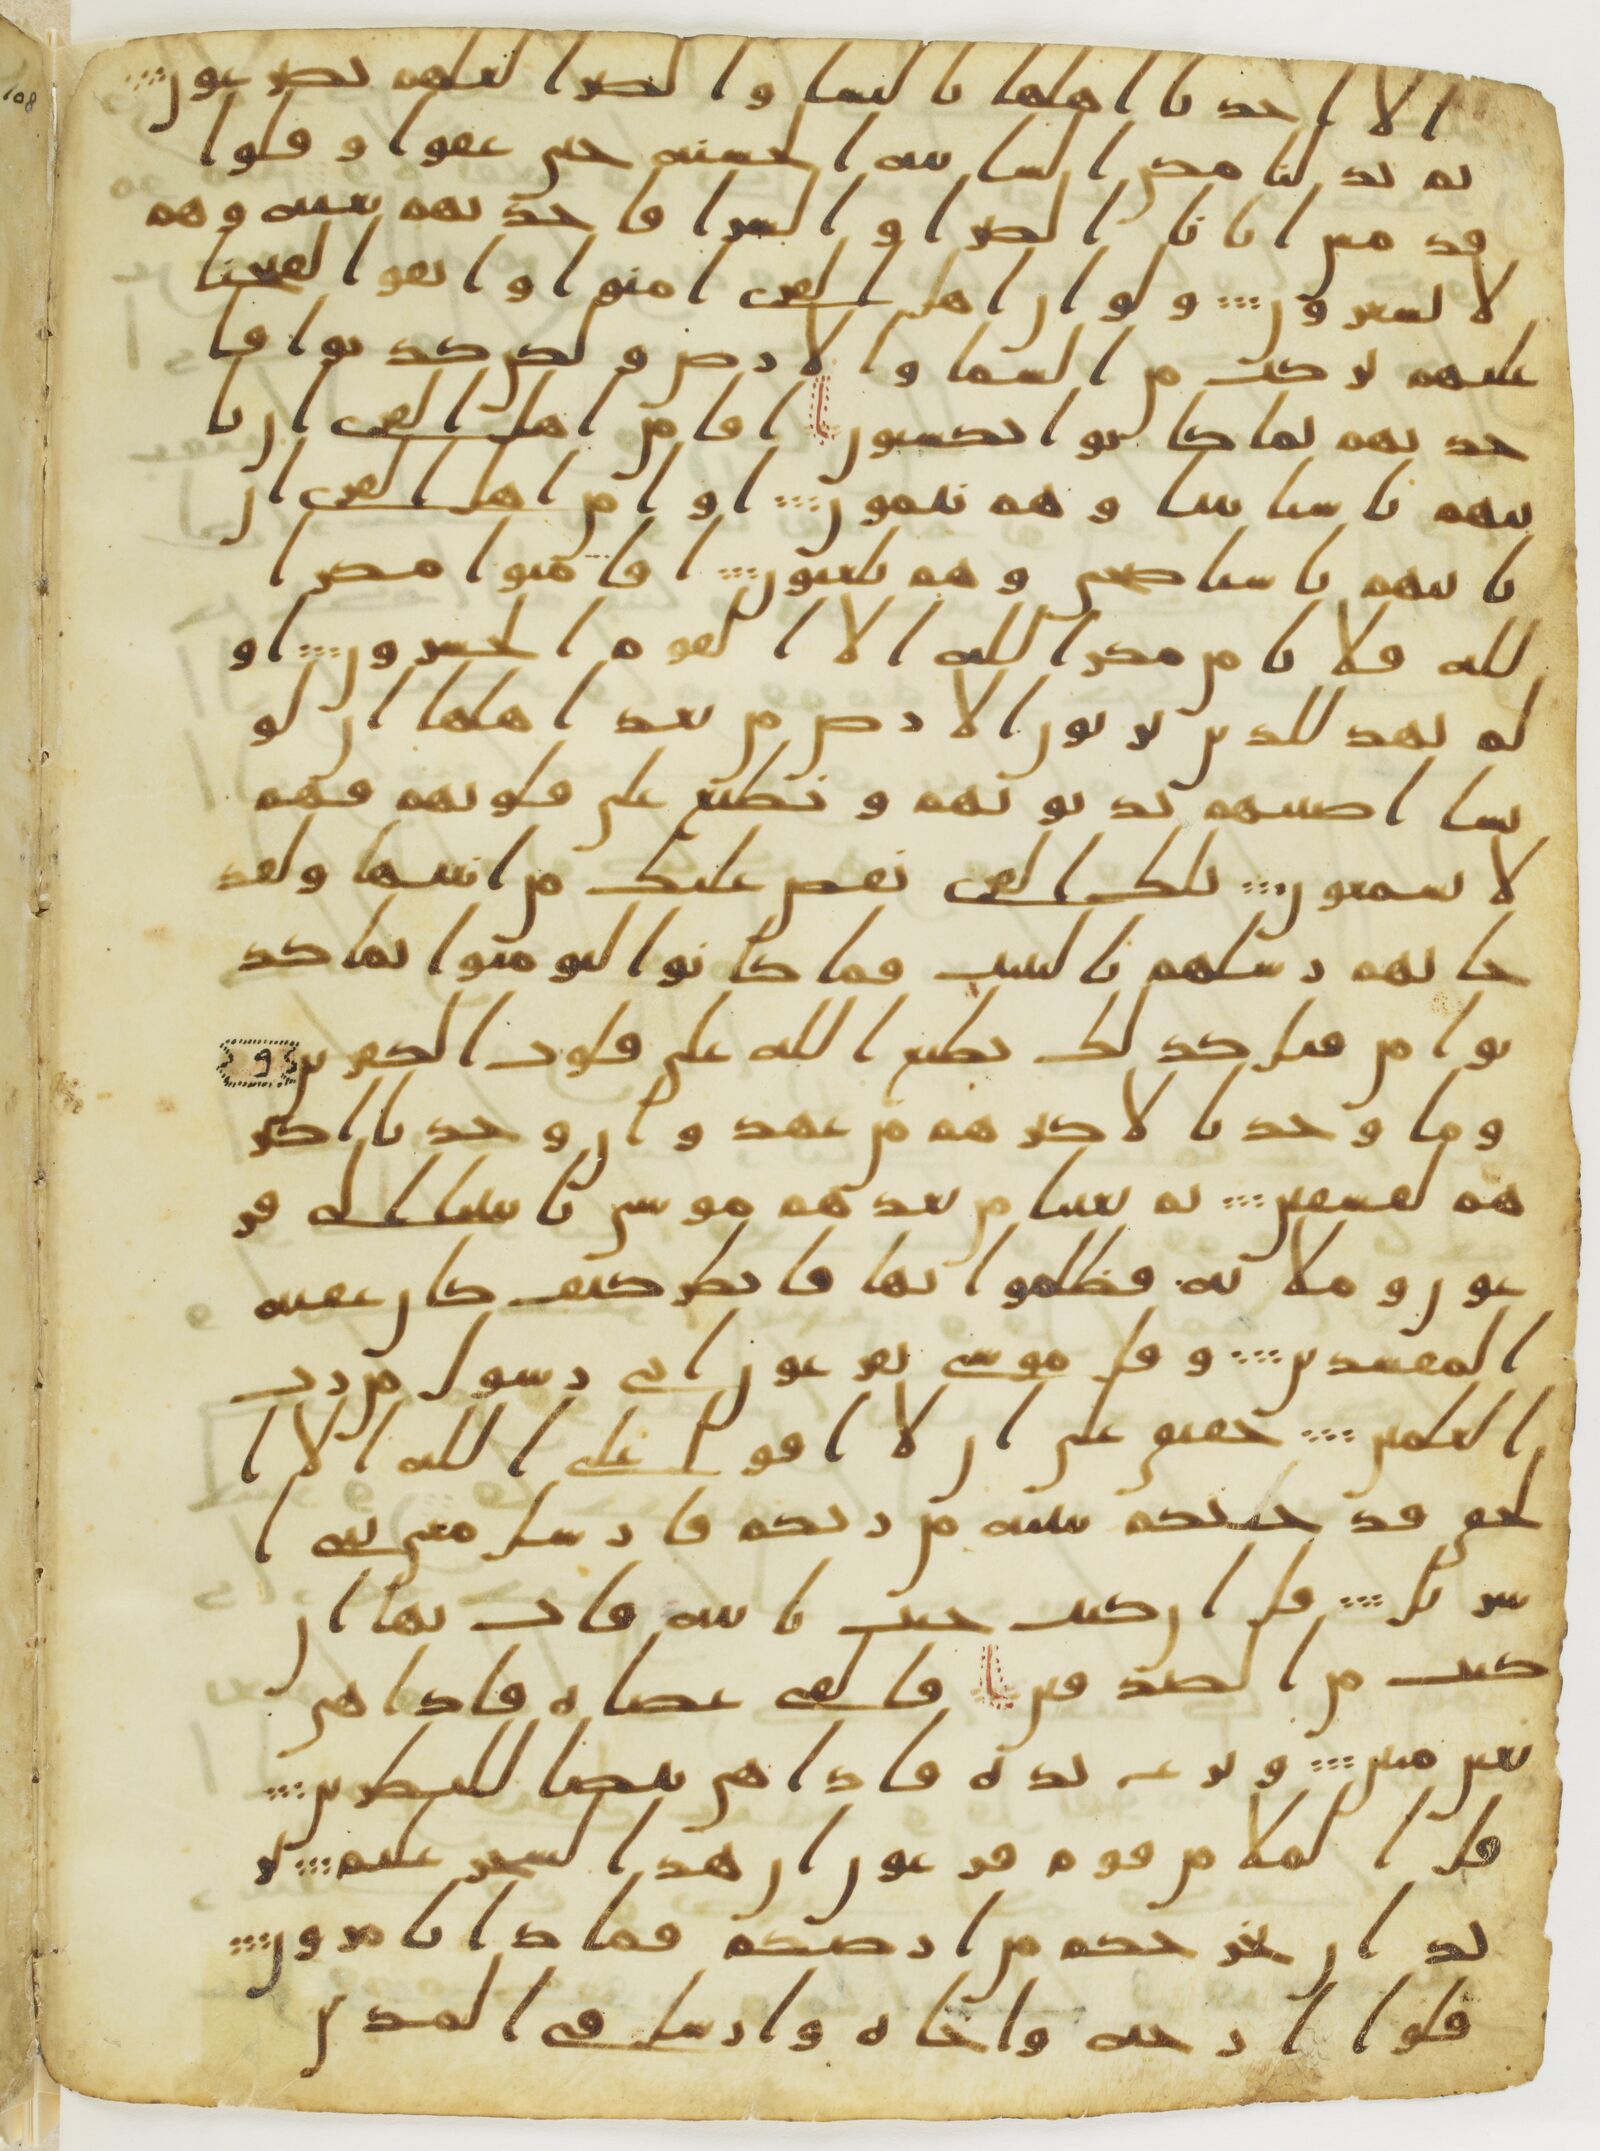 الا اخذنا اهلها بالباسا والضرا لعلهم يضرعون
ثم بدلنا مكن السيية الحسنة حتى عفوا وقلوا
قد مس ابانا الضرا والسرا فاخذنهم بغتة وهم
لا يشعرون ولو ان اهل القرى امنوا واتقوا لفتحنا
عليهم بركت من السما والارض ولكن كذبوا فا
خذنهم بما كانوا يكسبون افامن اهل القرى ان يا
تيهم باسنا بيتا وهم نيمون اوامن اهل القرى ان
ياتيهم باسنا ضحى وهم يلعبون افامنوا مكر ا
لله فلا يامن مكر الله الا القوم الخسرون او
لم يهد للذين يرثون الارض من بعد اهلها ان لو
نشا اصبنهم بذنوبهم ونطبع على قلوبهم فهم
لا يسمعون تلك القرى نقص عليك من انبيها ولقد
جاتهم رسلهم بالبينت فما كانوا ليومنوا بما كذ
بوا من قبل كذلك يطبع الله على قلوب الكفرين
وما وجدنا لاكثرهم من عهد وان وجدنا اكثر
هم لفسقين ثم بعثنا من بعدهم موسى باييتنا الى فر
عون وملايه فظلموا بها فانظر كيف كان عقبة
المفسدين وقل موسى يفرعون انى رسول من رب
العلمين حقيق على ان لا اقول على الله الا ا
لحق قد جيتكم ببينة من ربكم فارسل معى بنى ا
سريل قل ان كنت جيت باية فات بها ان
كنت من الصدقين فالقى عصاه فاذا هى
ثعبن مبين ونزع يده فاذا هى بيضا للنظرين
قل الملا من قوم فرعون ان هذا لسحر عليم ير
يد ان يخرجكم من ارضكم فماذا تامرون
قلوا ارجه واخاه وارسل فى المدين
108